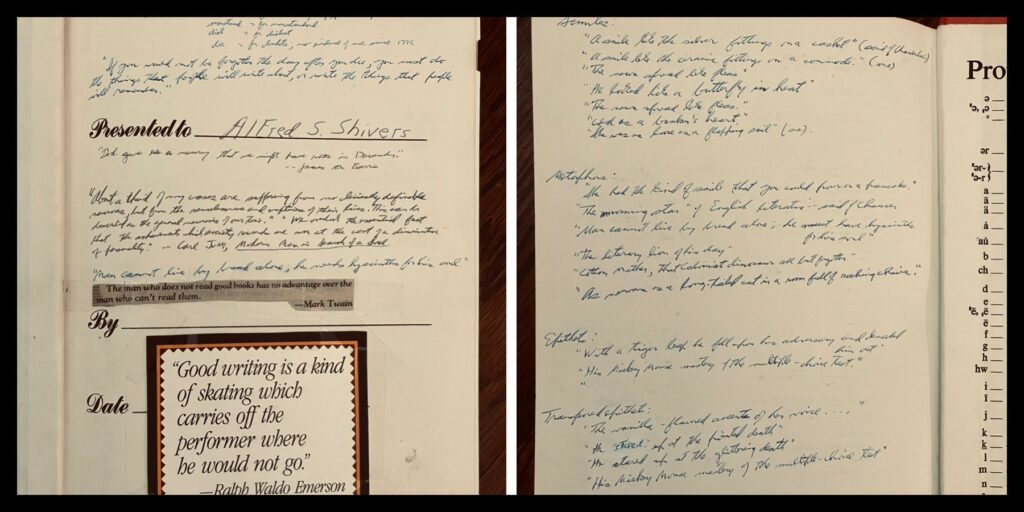 = for nonstandard
dial = for dialect
"If you would not be forgotten the day after you die, you must do
the things that people will write about, or write the things that people
will remember."
Presented to Alfred S. Shivers
"God gave us a memory that we might have roses in December."
-- James M. Barrie
"About a third of my cases are suffering from no clinically definable
neurosis, but from the senselessness and emptiness of their lives. This can be
described as the general neurosis of our time." "We overlook the essential fact
that the achievements which society rewards are won at the cost of a diminution
of personality." — Carl Jung, Modern Man in Search of a Soul
"Man cannot live by bread alone; he needs hyacinths for his soul"
The man who does not read good books has no advantage over the
man who can't read them.
—Mark Twain
By
Date
"Good writing is a kind
of skating which
carries off the
performer where
he would not go."
—Ralph Waldo Emerson
Similes:
"A smile like the silver fittings on a casket" (said of Chamberlain)
"A smile like the ceramic fittings on a commode." (me)
"The news spread like fleas"
"He looked like a butterfly in heat"
"The news spread like fleas."
"Cold as a banker's heart."
"He was as loose as a flapping sail" (me).
Metaphors:
"He had the kind of smile that you could pour on a pancake."
"The morning star" of English literature -- said of Chaucer
"Man cannot live by bread alone; he must have hyacinths
for his soul"
"The literary lion of his day"
"Cotton Mather, that Calvinist dinosaur all but forgotten"
"As nervous as a long-tailed cat in a room full of rocking chairs."
Epithets:
"With a tiger leap he fell upon his adversary and
him out"
"His Mickey Mouse mastery of the multiple-choice test."
"
Transferred epithet:
"The vanilla-flavored accents of her voice . . . ."
"He stared up at the death"
"He stared up at the glittering death"
"His Mickey Mouse mastery of the multiple-choice test"
Pro
ə
'ə, ˌə
ər
a
ā
ä
aù
b
ch
d
e
ē
f
g
h
hw
i
ī
j
k
k
l
m
n